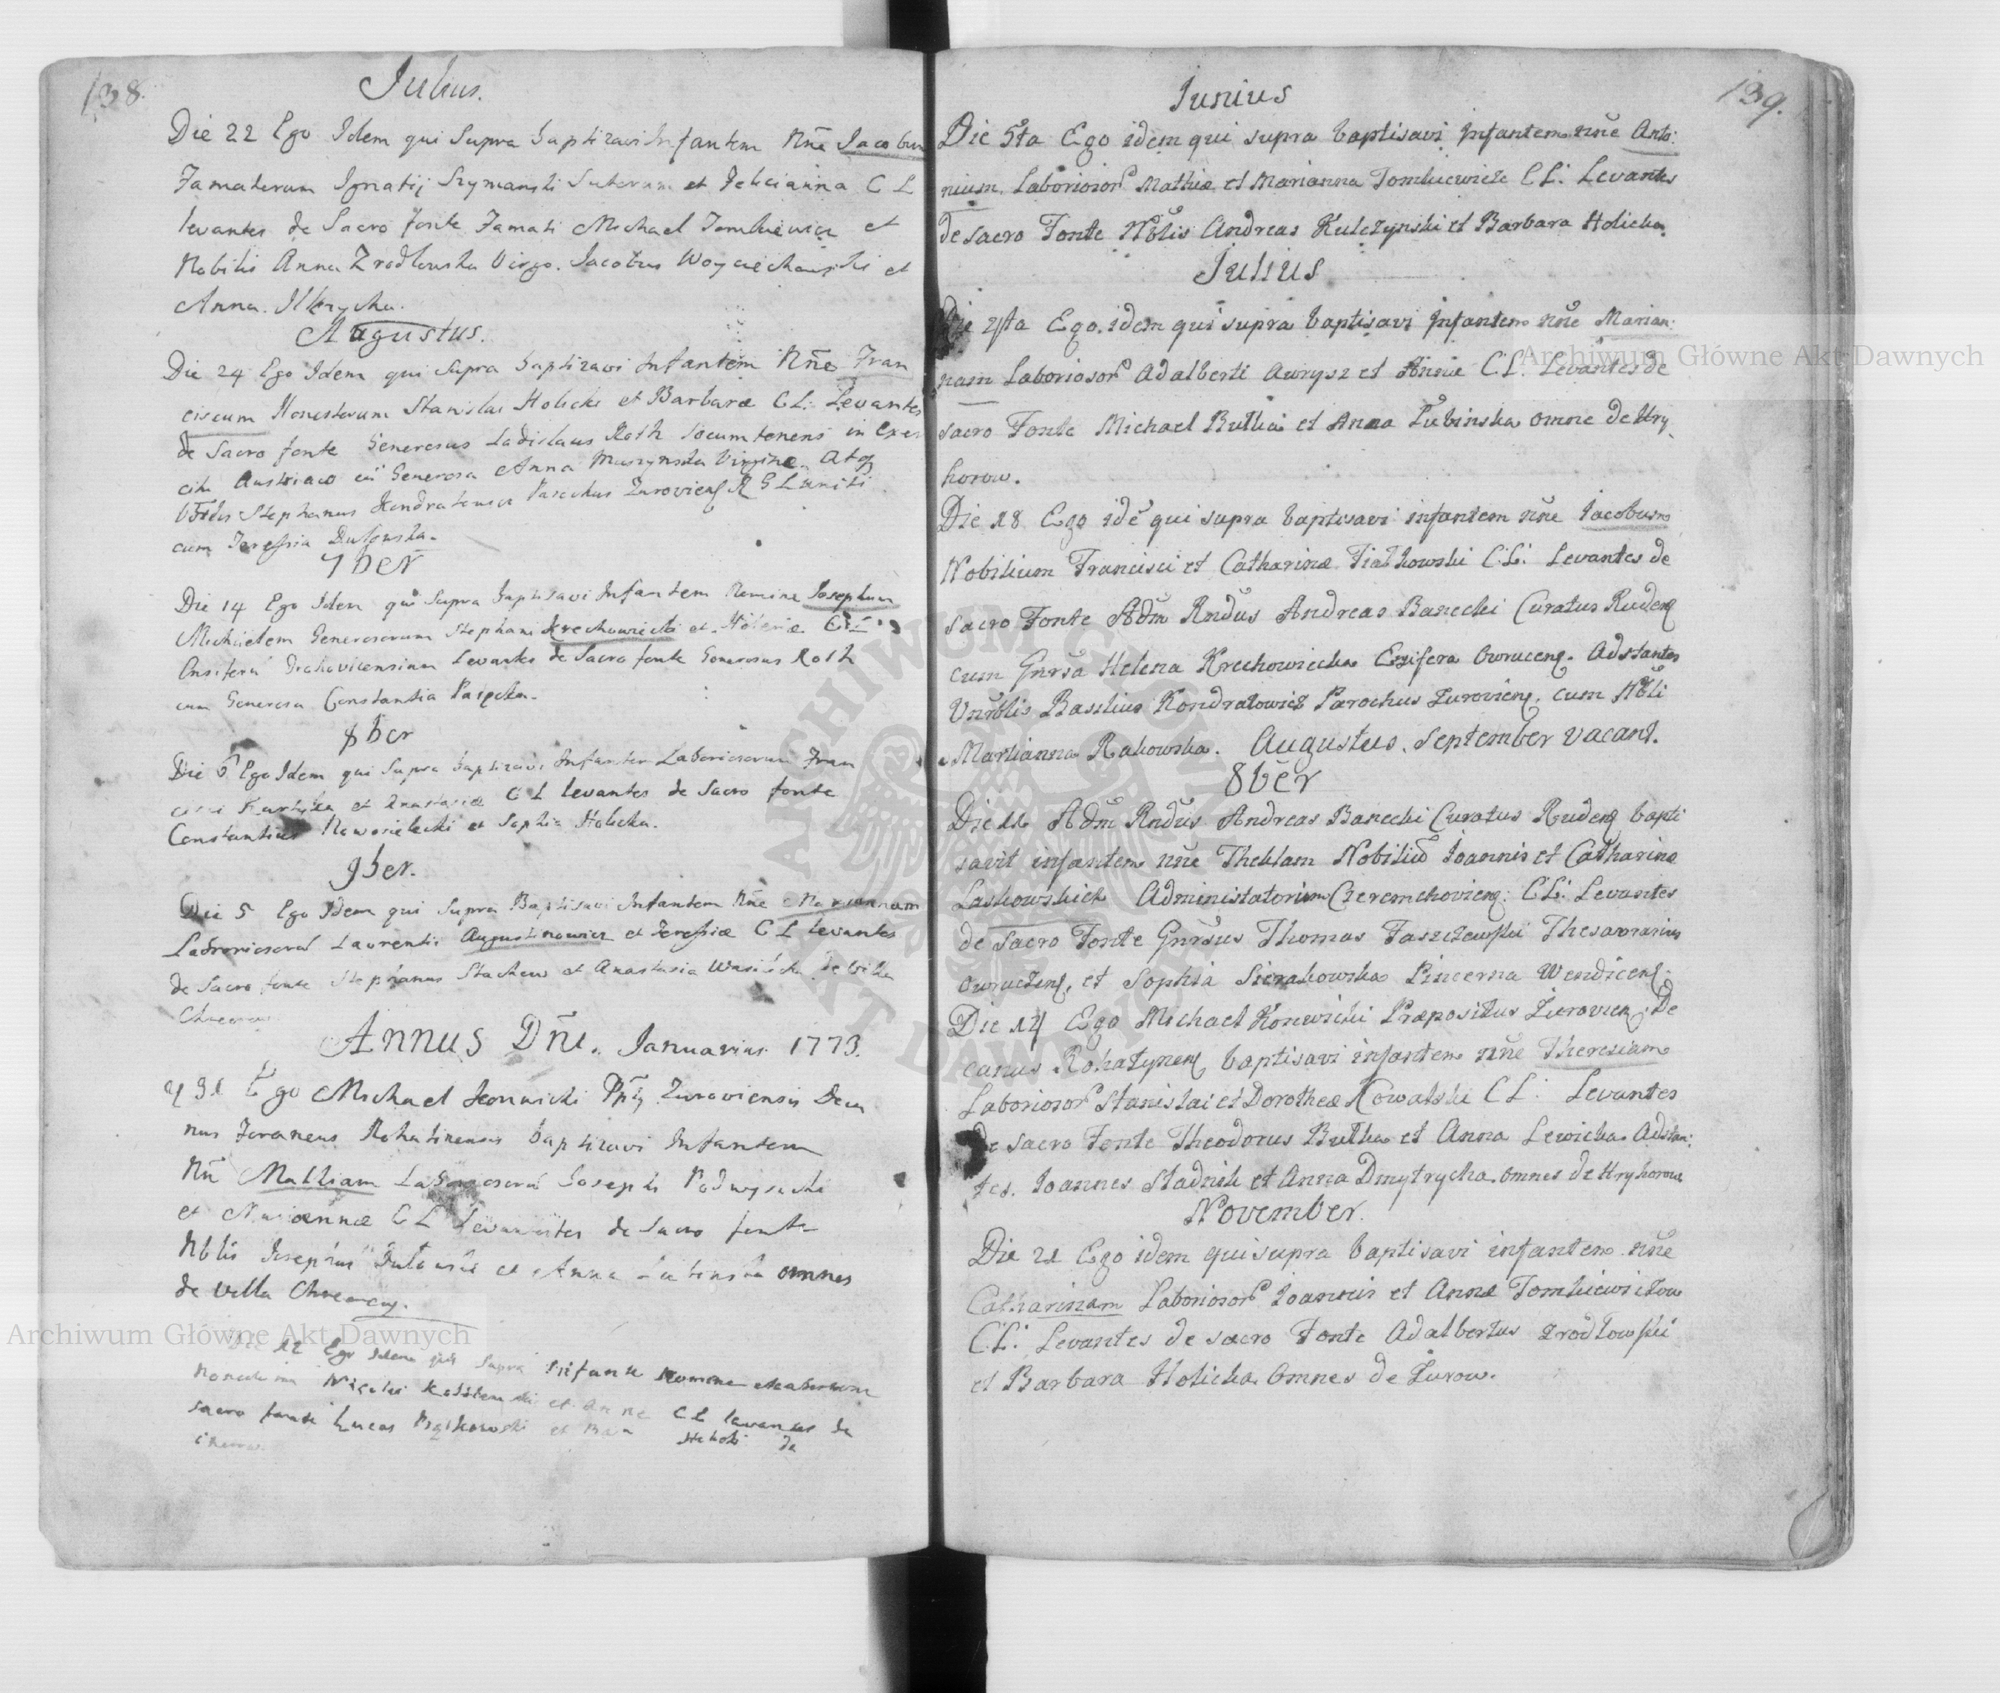 138.
Julius.
Die 22 Ego Idem qui Supra baptizavi Infantem Nñe Jacobum
Famatorum Ignatij Szymanski Sutorum et Felicianna C L
levantes de Sacro fonte Famati Michael Tomkiewicz et
Nobilis Anna Zrodlowska Virgo. Jacobus Woyciechowski et
Anna
Augustus.
Die 24 Ego Idem qui Supra baptizavi Infantem Nñe Fran
ciscum Honestorum Stanislai Holicki et Barbaræ C L: Levantes
de Sacro fonte Generosus Ladislaus Roth locumtenens in Exer
citu Austriaco cũ Generosa Anna Muszynska Virgine
Stephanus Kondratowicz Parochus R G L uniti
cum Teressia
7ber
Die 14 Ego Idem qui Supra baptisavi Infantem Nomine Josephum
Generosorum Stephani Krechowiecki et Helenæ
Levantes de Sacro fonte Generosus Roth
cum Generosa Constantia
8ber
Die 6 Ego Idem qui Supra baptizavi Infantem Laboriosorum Fran
et Anastasiæ C L levantes de Sacro fonte
Constantius et Sophia Holicka.
9ber.
Die 5 Ego Idem qui Supra Baptisavi Infantem Nñe Mariannam
Laurentii Augustinowicz et Teressiæ C L levantes
de Sacro fonte Stephanus Stachow et Anastasia de Villa
Annus Dñi. Januarius 1773.
Ego Michael Konwicki Zuroviensis Deca
nus Foraneus Rohatinensis baptizavi Infantem
Nñ Josephi Podwysocki
et Mariannæ C L Levantes de Sacro fonte
Nblis Josephus et Anna omnes
de Villa
Die 12 Ego Idem qui Supra Infante Nomine
Nicolai et Annæ C L levantes de
sacro fonte Lucas et
139.
Junius
Die 5ta Ego idem qui supra baptisavi Jnfantem nñe Anto:
nium. Laborioror Mathiæ et Marianna Tomkiewicz C L: Levantes
de sacro Fonte Nblis Andreas Kulczynski et Barbara Holicka
Julius
Ego idem qui supra baptisavi Jnfantem nñe Marian:
nam Laborioror Adalberti Awrysz et Annæ C L. Levantes de
sacro Fonte Michael Butka et Anna Lubinska omne de Hry
horow.
Die 18 Ego idẽ qui supra baptisavi infantem nñe Jacobum
Nobilium Francisci et Catharinæ Fiałkowski C: L: Levantes de
sacro Fonte Adm Rndus Andreas Banecki Curatus Rudeñ
cum Gnrsa Helena Krechowiecka Ensifera Owruceñ. Adstantes
Basilius Kondratowicz Parochus Zurovieñ. cum Nbli
Marianna Rakowska. Augustus. September vacant.
8bẽr
Die 11 Adm Rndus Andreas Banecki Curatus Rudeñ bapti
savit infantem nñe Theklam Nobiliũ Joannis et Catharinæ
Laskowskich Administatorium Czeremchovieñ: C: L: Levantes
de sacro Fonte Gnrsus Thomas Faszczewski Thesaurarius
Owruczeñ, et Sophia Sierakowska Pincerna Wendiceñ:
Die 14 Ego Michael Konwicki Præpositus Zurovieñ. De
canus Rohatyneñ baptisavi infantem nñe Theresiam
Laborioror Stanislai et Dorotheæ Kowalski C L: Levantes
de sacro Fonte Theodorus Butka et Anna Lewicka Adstan:
tes. Joannes Stadnik et Anna Dmytrycha. omnes de Hryhorow
November.
Die 21 Ego idem qui supra baptisavi infantem nñe
Catharinam Laborioror Joannis et Annæ Tomkiewiczow
C: L: Levantes de sacro Fonte Adalbertus Zrodłowski
et Barbara Holicka Omnes de Zurow.
Archiwum Główne Akt Dawnych
Archiwum Główne Akt Dawnych
ARCHIWUM GŁÓWNE AKT DAWNYCH